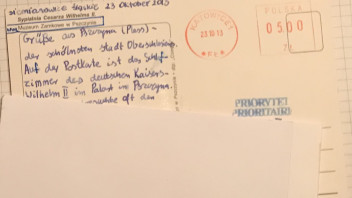 Siemianowice Śląskie 23 October 2013
Sypialnia Cesarza Wilhelma II.
Muzeum Zamkowe w Pszczynie
Grüße aus Pszczyna (Pless) -
der schönsten Stadt Oberschlesiens.
Auf der Postkarte ist das Schlaf-
zimmer des deutschen Kaisers
Wilhelm II im Palast im Pszczyna.
oft den
23.10.13
POLSKA
0500
PRIORYTET
PRIORITAIRE